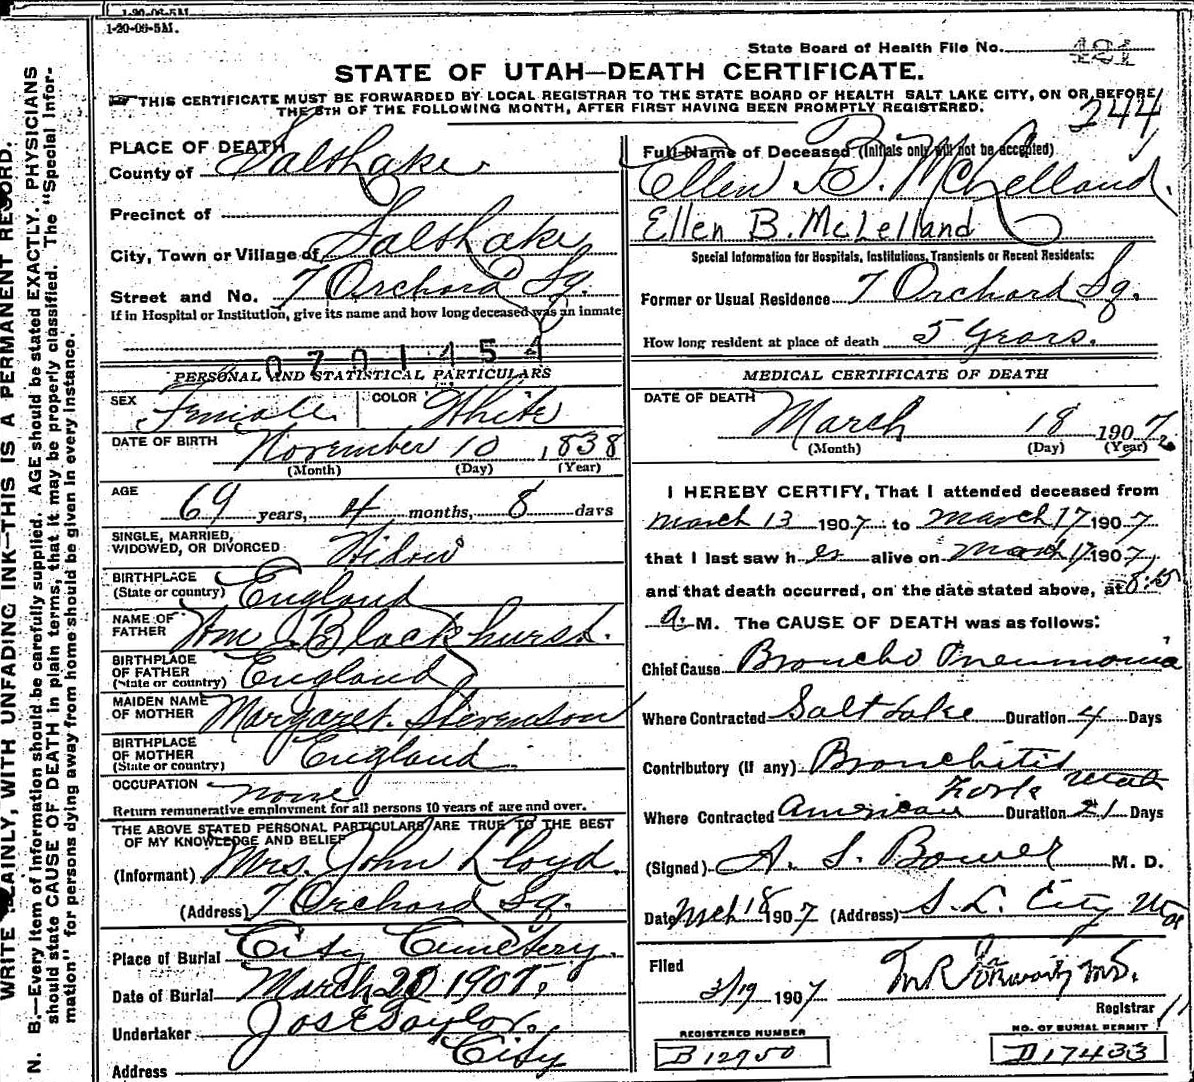 1-20-09-5M.
State Board of Health File No. 181
STATE OF UTAH—DEATH CERTIFICATE.
THIS CERTIFICATE MUST BE FORWARDED BY LOCAL REGISTRAR TO THE STATE BOARD OF HEALTH SALT LAKE CITY, ON OR BEFORE
THE 5TH OF THE FOLLOWING MONTH, AFTER FIRST HAVING BEEN PROMPTLY REGISTERED.
244
WRITE PLAINLY, WITH UNFADING INK—THIS IS A PERMANENT RECORD.
N. B.—Every item of information should be carefully supplied. AGE should be stated EXACTLY. PHYSICIANS
should state CAUSE OF DEATH in plain terms, that it may be properly classified. The "Special Infor-
mation" for persons dying away from home should be given in every instance.
PLACE OF DEATH
County of Salt Lake
Precinct of
City, Town or Village of Salt Lake
Street and No. 7 Orchard Sq.
If in Hospital or Institution, give its name and how long deceased was an inmate
0701454
PERSONAL AND STATISTICAL PARTICULARS
SEX Female COLOR White
DATE OF BIRTH November 10, 1838
(Month) (Day) (Year)
AGE 69 years, 4 months, 8 days
SINGLE, MARRIED,
WIDOWED, OR DIVORCED Widow
BIRTHPLACE
(State or country) England
NAME OF
FATHER Wm J Blackhurst.
BIRTHPLACE
OF FATHER
(State or country) England
MAIDEN NAME
OF MOTHER Margaret Stevenson
BIRTHPLACE
OF MOTHER
(State or country) England
OCCUPATION none
Return remunerative employment for all persons 10 years of age and over.
THE ABOVE STATED PERSONAL PARTICULARS ARE TRUE TO THE BEST
OF MY KNOWLEDGE AND BELIEF
(Informant) Mrs. John Lloyd.
(Address) 7 Orchard Sq.
Place of Burial City Cemetery.
Date of Burial March 20 1907.
Undertaker Jos E Taylor.
Address City
Full Name of Deceased (Initials only will not be accepted)
Ellen B. McLelland.
Ellen B. McLelland
Special Information for Hospitals, Institutions, Transients or Recent Residents:
Former or Usual Residence 7 Orchard Sq.
How long resident at place of death 5 Years.
MEDICAL CERTIFICATE OF DEATH
DATE OF DEATH March 18 1907
(Month) (Day) (Year)
I HEREBY CERTIFY, That I attended deceased from
March 13 1907 to March 17 1907
that I last saw her alive on March 17 1907,
and that death occurred, on the date stated above, at 8:15
a. M. The CAUSE OF DEATH was as follows:
Chief Cause Broncho Pneumonia
Where Contracted Salt Lake Duration 4 Days
Contributory (if any) Bronchitis
Where Contracted American Fork Utah Duration 21 Days
(Signed) A. S. Bower M. D.
Date Mch 18 1907 (Address) S. L. City Utah
Filed
3/19 1907
Registrar
REGISTERED NUMBER
B12950
NO. OF BURIAL PERMIT
D17433